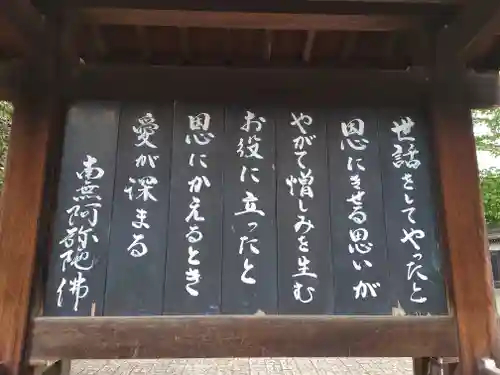 世話をしてやったと
恩にきせる思いが
やがて憎しみを生む
お役に立ったと
恩にかえるとき
愛が深まる
南無阿弥陀佛